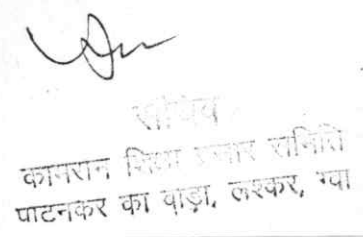 सचिव
कामरान शिक्षा प्रसार समिति
पाटनकर का वाड़ा, लश्कर, ग्वा